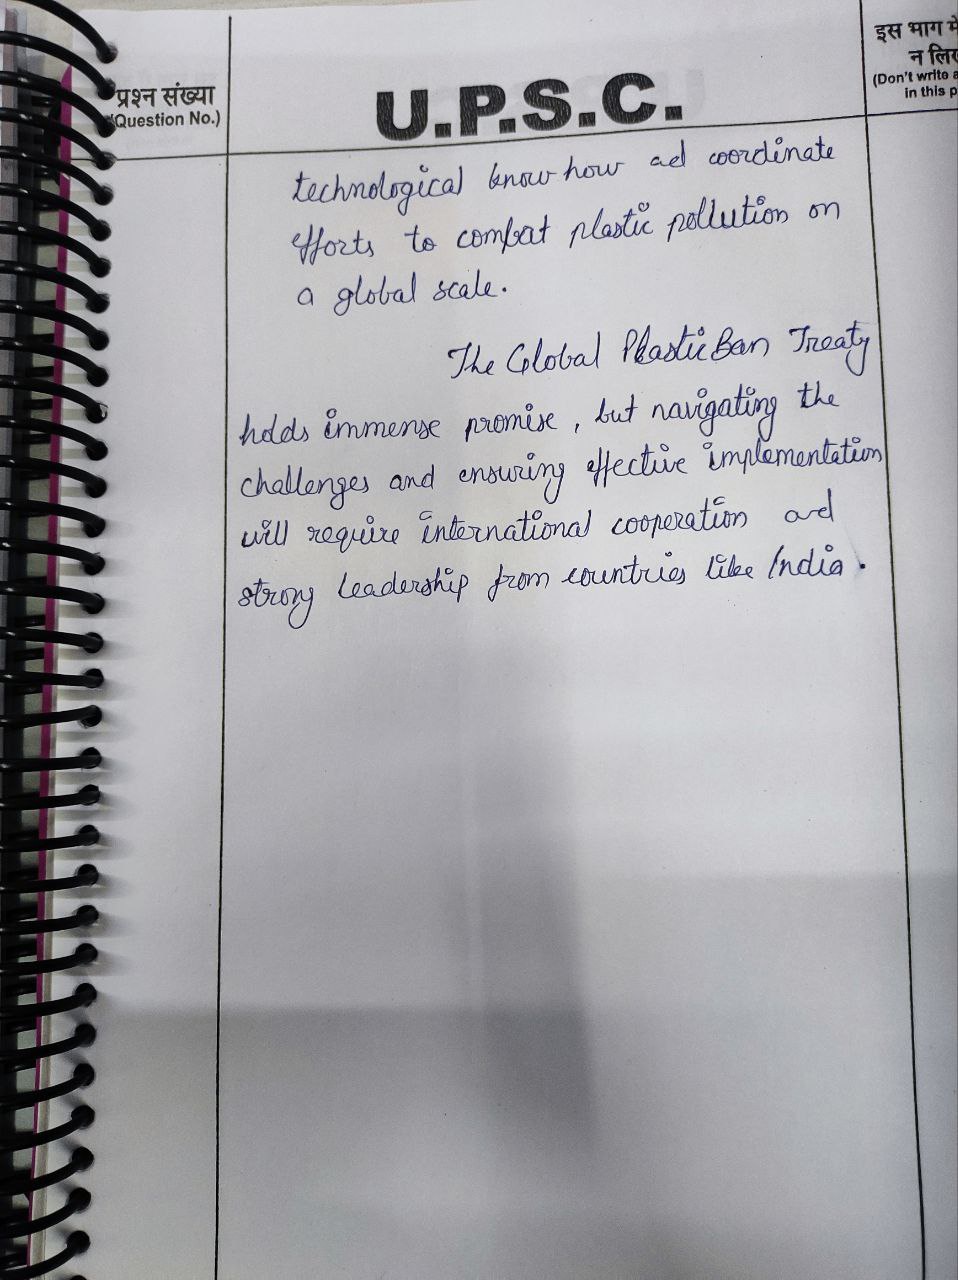 प्रश्न संख्या
(Question No.)
U.P.S.C.
इस भाग में
न लिख
(Don't write a
in this p
technological know how ad coordinate
efforts to combat plastic pollution on
a global scale.
The Global Plastic Ban Treaty
holds immense promise, but navigating the
challenges and ensuring effective implementation
will require international cooperation and
strong leadership from countries like India.